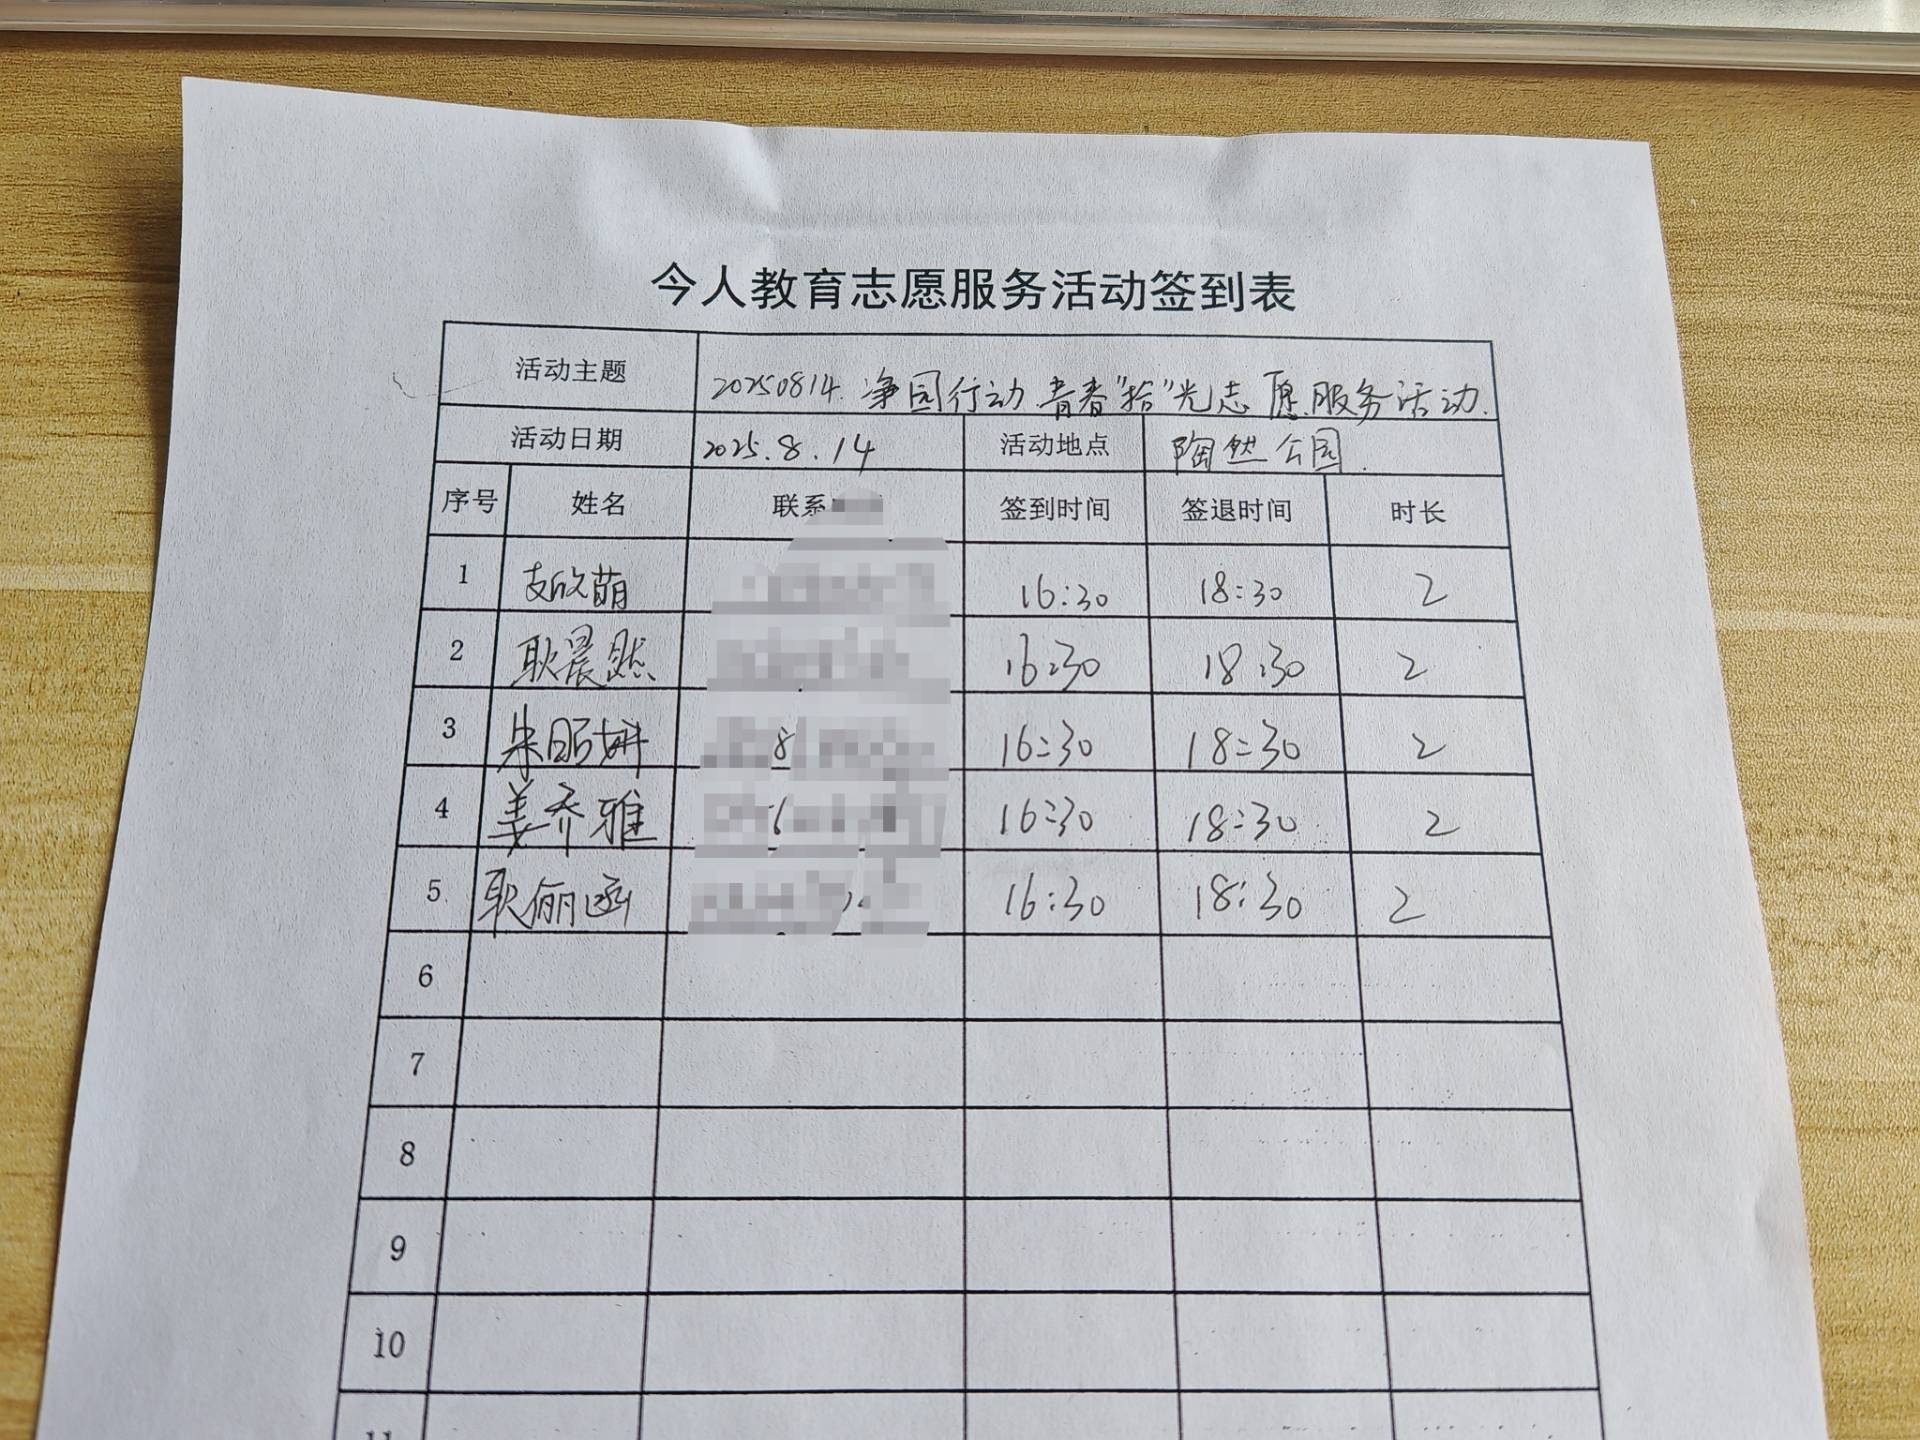 今人教育志愿服务活动签到表
活动主题 20250814.净园行动.青春"拾"光志愿服务活动.
活动日期 2025.8.14 活动地点 陶然公园.
序号 姓名 联系 签到时间 签退时间 时长
1 支欣萌 16:30 18:30 2
2 耿晨然 16:30 18:30 2
3 朱昭妍 8 16:30 18:30 2
4 姜乔雅 6 16:30 18:30 2
5 耿俪函 16:30 18:30 2
6
7
8
9
10
11